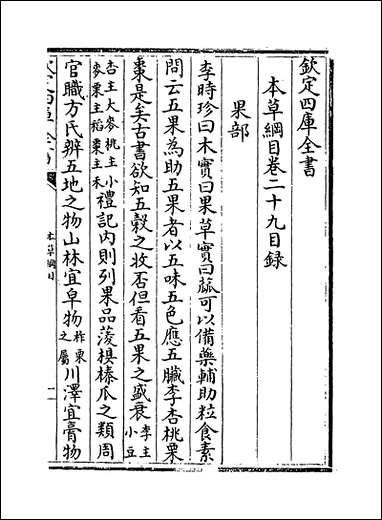 欽定四庫全書
本草綱目卷二十九目錄
果部
李時珍曰木實曰果草實曰蓏可以備藥輔助粒食素
問云五果為助五果者以五味五色應五臟李杏桃栗
棗是矣古書欲知五穀之收否但看五果之盛衰李主小豆
杏主大麥桃主小麥栗主稻棗主禾禮記内則列果品菱椇榛瓜之類周
官職方氏辨五地之物山林宜皁物柞栗之屬川澤宜膏物
欽定四庫全書
本草綱目
一